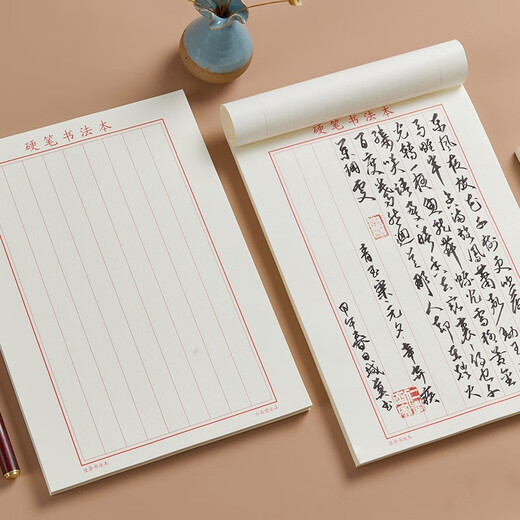 硬笔书法本
硬笔书法本
东风夜放花千树更吹落
马雕车香满路凤箫声动
光转一夜鱼龙舞蛾儿雪柳黄金
缕笑语盈盈暗香去众里寻他千
百度蓦然回首那人却在灯火
阑珊处
青玉案元夕辛弃疾
甲午春日